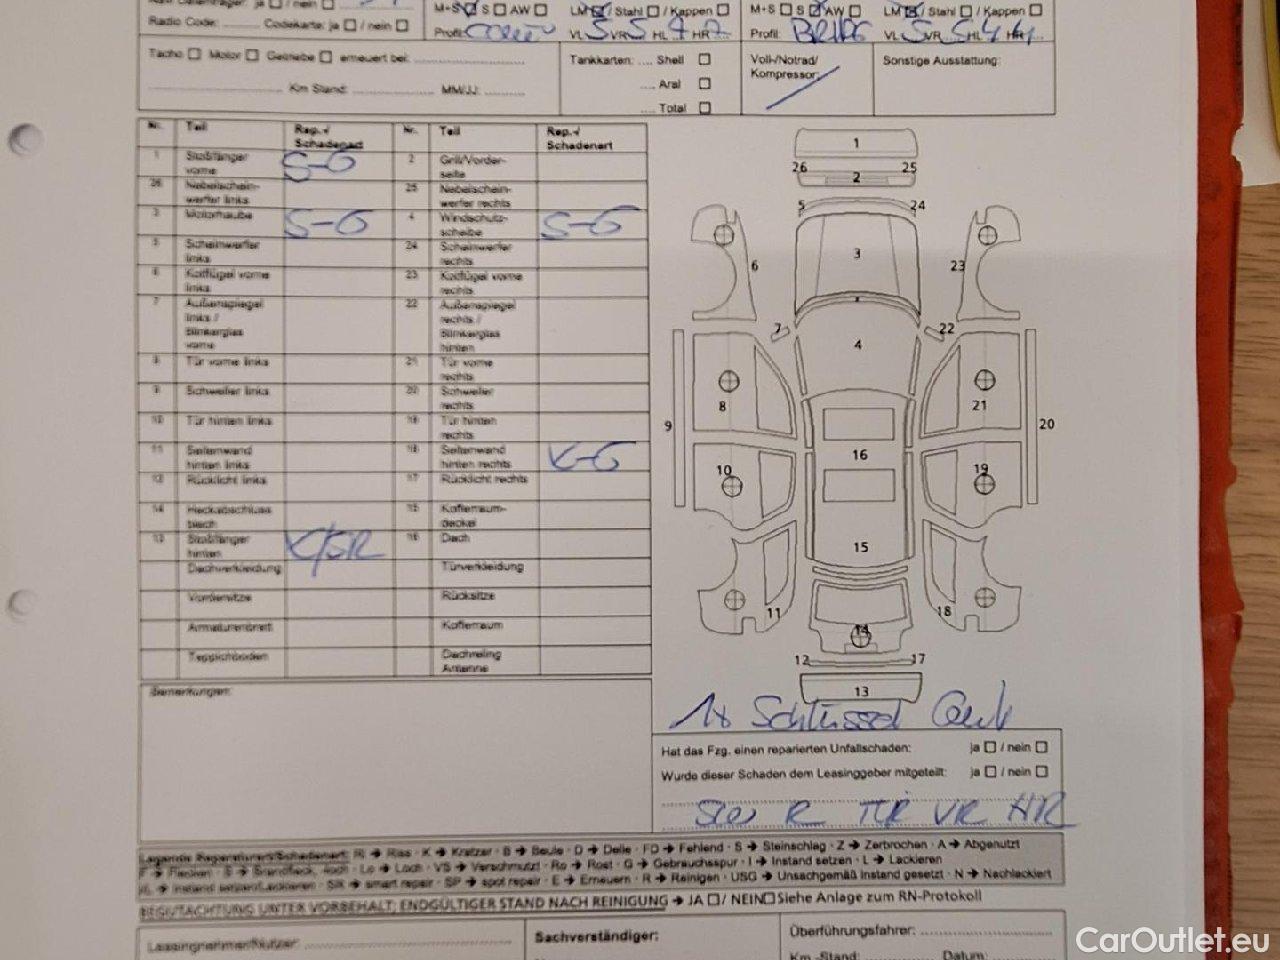 M+S S AW
LM / Stahl / Kappen
M+S S AW
LM / Stahl / Kappen
Radio Code: Codekarte: ja / nein
Profil:
VL 5 VR 5 HL 7 HR 7
Profil:
VL 5 VR 5 HL 4 HR 4
Tacho Motor Getriebe erneuert bei:
Km Stand: MM/JJ:
Tankkarten: .... Shell
.... Aral
.... Total
Voll-/Notrad/
Kompressor:
Sonstige Ausstattung:
Nr. Teil Rep.-/ Nr. Teil Rep.-/
Schadenart Schadenart
1 Stoßfänger S-G 2 Grill/Vorder-
vorne seite
26 Nebelschein- 25 Nebelschein-
werfer links werfer rechts
3 Motorhaube S-G 4 Windschutz- S-G
scheibe
5 Scheinwerfer 24 Scheinwerfer
links rechts
6 Kotflügel vorne 23 Kotflügel vorne
links rechts
7 Außenspiegel 22 Außenspiegel
links / rechts /
Blinkerglas Blinkerglas
vorne hinten
8 Tür vorne links 21 Tür vorne
rechts
9 Schweller links 20 Schweller
rechts
10 Tür hinten links 19 Tür hinten
rechts
11 Seitenwand 18 Seitenwand K-G
hinten links hinten rechts
12 Rücklicht links 17 Rücklicht rechts
14 Heckabschluss 15 Kofferraum-
blech deckel
13 Stoßfänger K/SR 16 Dach
hinten
Dachverkleidung Türverkleidung
Vordersitze Rücksitze
Armaturenbrett Kofferraum
Teppichboden Dachreling
Antenne
Bemerkungen:
1
26 25
2
5 24
3
6 23
7 22
4
8 21
9 20
16
10 19
15
11 18
14
12 17
13
1x Schlüssel
Hat das Fzg. einen reparierten Unfallschaden: ja / nein
Wurde dieser Schaden dem Leasinggeber mitgeteilt: ja / nein
R TÜR VR HR
Legende Reparaturart/Schadenart: Ri → Riss · K → Kratzer · B → Beule · D → Delle · FD → Fehlend · S → Steinschlag · Z → Zerbrochen · A → Abgenutzt
F → Flecken · Lo → Loch · VS → Verschmutzt · Ro → Rost · G → Gebrauchsspur · I → Instand setzen · L → Lackieren
SR → smart repair · SP → spot repair · E → Erneuern · R → Reinigen · USG → Unsachgemäß instand gesetzt · N → Nachlackiert
BEGUTACHTUNG UNTER VORBEHALT; ENDGÜLTIGER STAND NACH REINIGUNG → JA / NEIN Siehe Anlage zum RN-Protokoll
Leasingnehmer/Nutzer:
Sachverständiger:
Überführungsfahrer:
Km.-Stand: Datum:
CarOutlet.eu